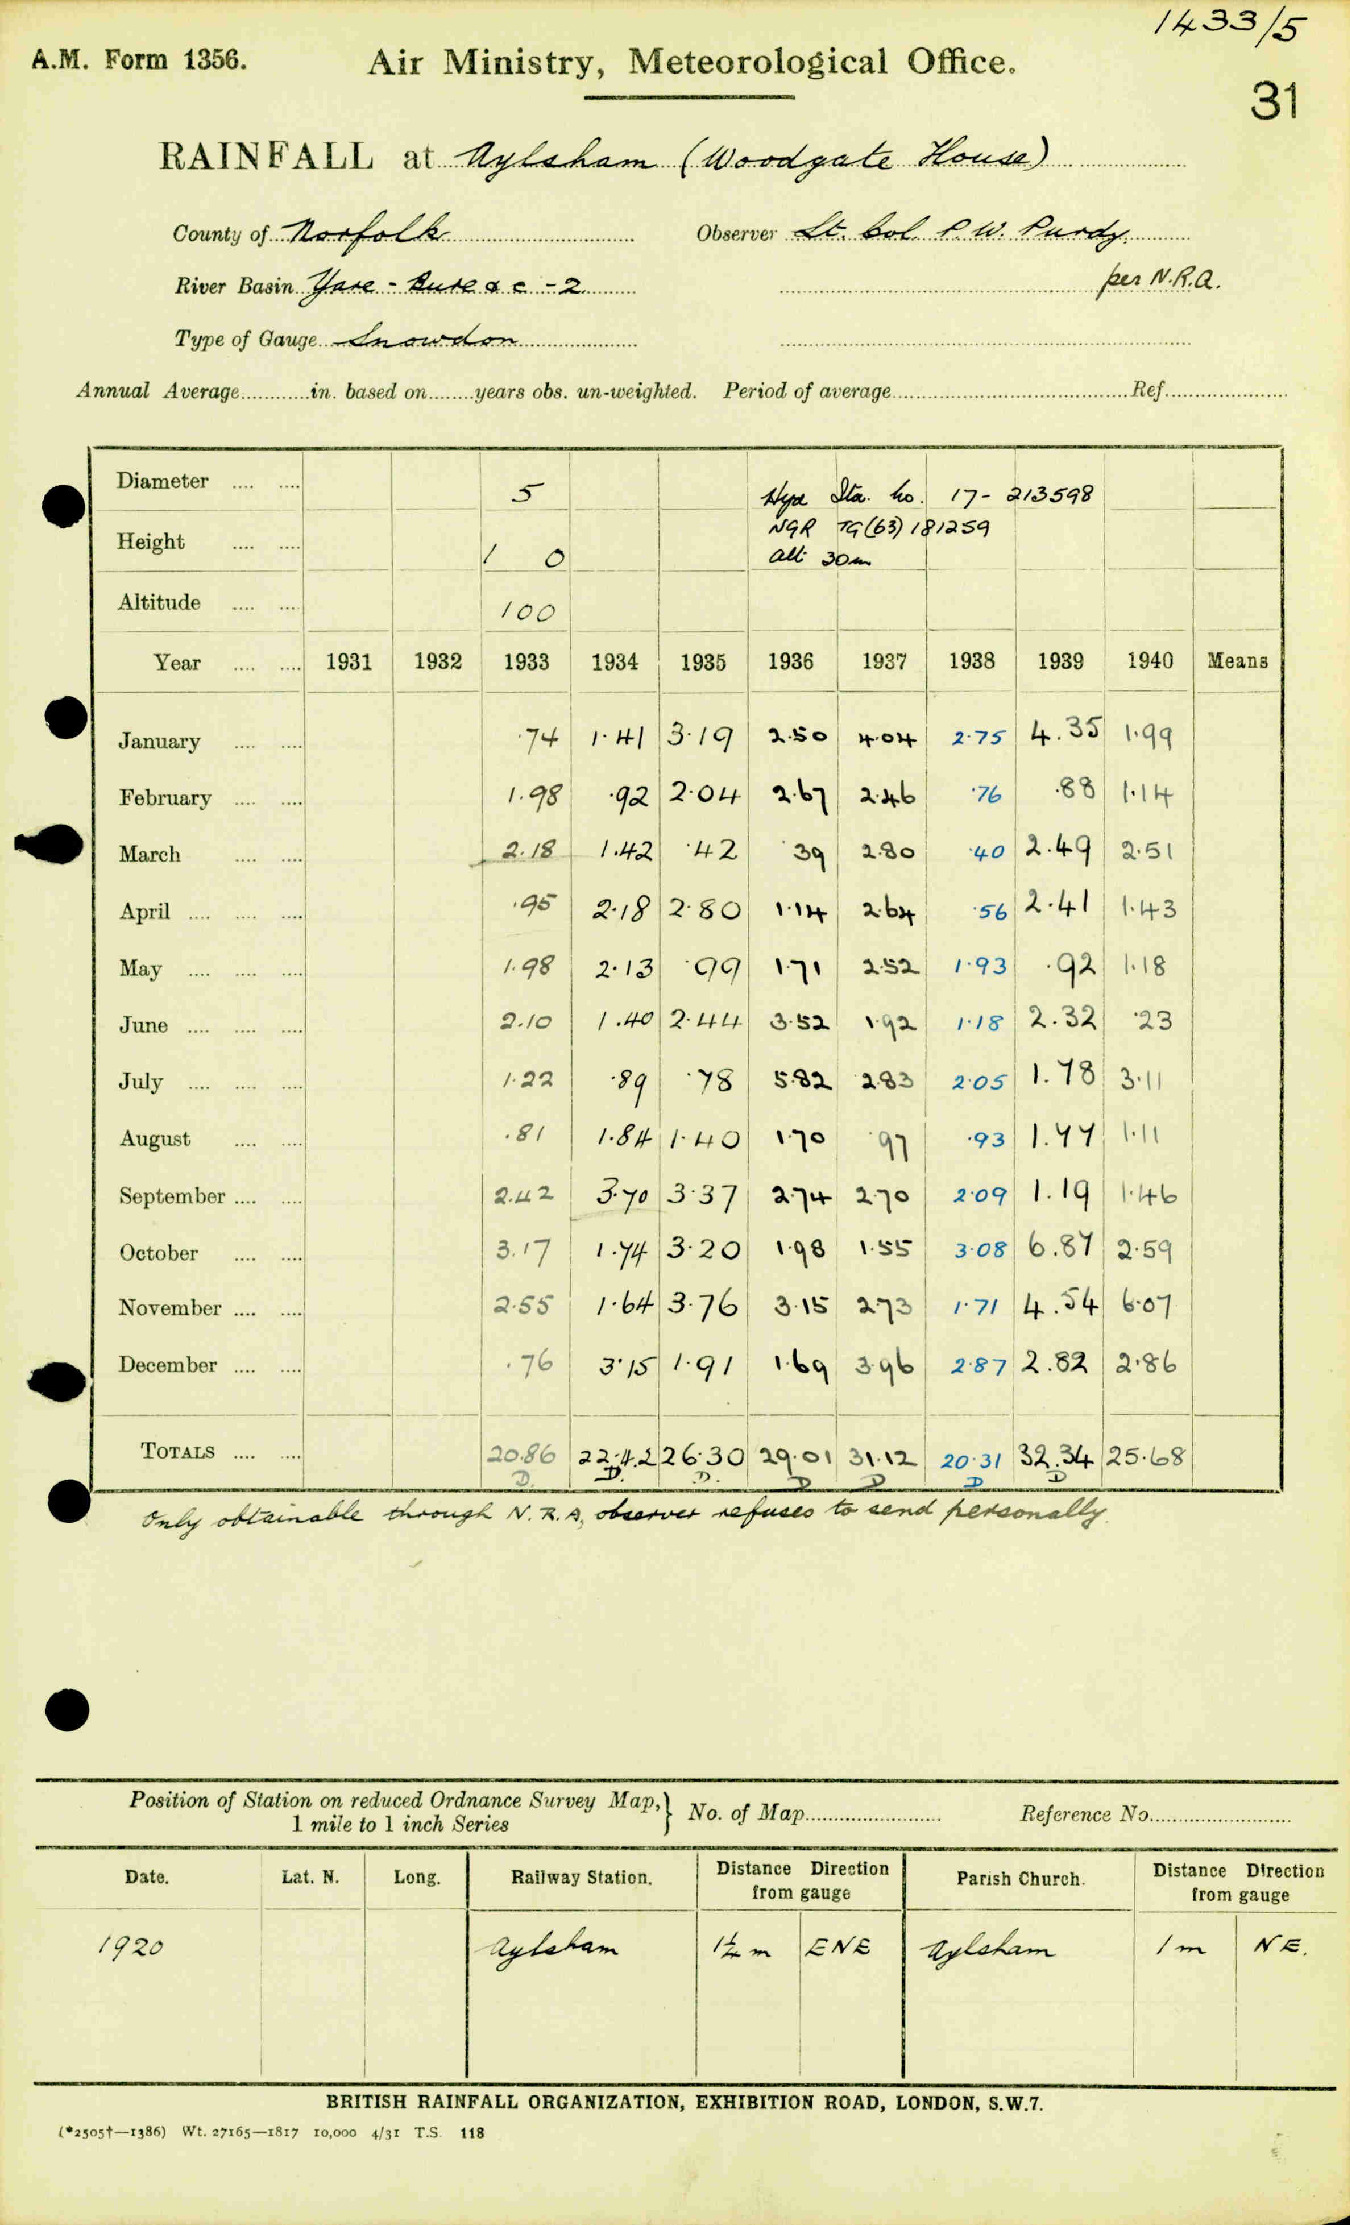 1433/5
A.M. Form 1356. Air Ministry, Meteorological Office.
31
RAINFALL at Aylsham (Woodgate House)
County of Norfolk Observer Lt. Col. P. W. Purdy.
River Basin Yare - Bure & c - 2 per N.R.A.
Type of Gauge Snowdon
Annual Average in. based on years obs. un-weighted. Period of average Ref.
Diameter 5 Hyd Sta. No. 17- 213598
NGR TG(63) 181259
Height 1 0 Alt 30m
Altitude 100
Year 1931 1932 1933 1934 1935 1936 1937 1938 1939 1940 Means
January .74 1.41 3.19 2.50 4.04 2.75 4.35 1.99
February 1.98 .92 2.04 2.67 2.46 .76 .88 1.14
March 2.18 1.42 .42 .39 2.80 .40 2.49 2.51
April .95 2.18 2.80 1.14 2.64 .56 2.41 1.43
May 1.98 2.13 .99 1.71 2.52 1.93 .92 1.18
June 2.10 1.40 2.44 3.52 1.92 1.18 2.32 .23
July 1.22 .89 .78 5.82 2.83 2.05 1.78 3.11
August .81 1.84 1.40 1.70 .97 .93 1.77 1.11
September 2.42 3.70 3.37 2.74 2.70 2.09 1.19 1.46
October 3.17 1.74 3.20 1.98 1.55 3.08 6.87 2.59
November 2.55 1.64 3.76 3.15 2.73 1.71 4.54 6.07
December .76 3.15 1.91 1.69 3.96 2.87 2.82 2.86
TOTALS 20.86 22.42 26.30 29.01 31.12 20.31 32.34 25.68
D. D. D. D D D D
Only obtainable through N.R.A, observer refuses to send personally.
Position of Station on reduced Ordnance Survey Map, } No. of Map Reference No.
1 mile to 1 inch Series
Date. Lat. N. Long. Railway Station. Distance Direction from gauge Parish Church. Distance Direction from gauge
1920 Aylsham 1¼ m ENE Aylsham 1 m NE.
BRITISH RAINFALL ORGANIZATION, EXHIBITION ROAD, LONDON, S.W.7.
(*2505†—1386) Wt. 27165—1817 10,000 4/31 T.S. 118